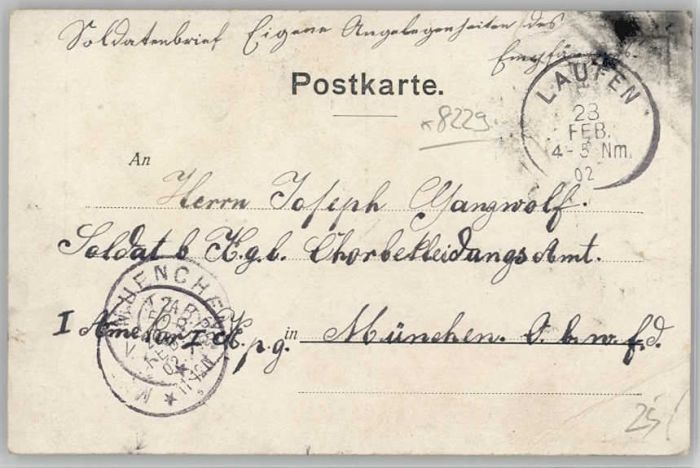 Soldatenbrief Eigene Angelegenheiten des
Empfängers.
Postkarte.
LAUFEN
23
FEB.
4-5 Nm.
02
*8229
An
Herrn Joseph Gangwolf.
Soldat b Kgl. Chorbekleidungs Amt.
MUENCHEN
I Armeekor I K.p.g. in München. O.b.w.f.d.
25